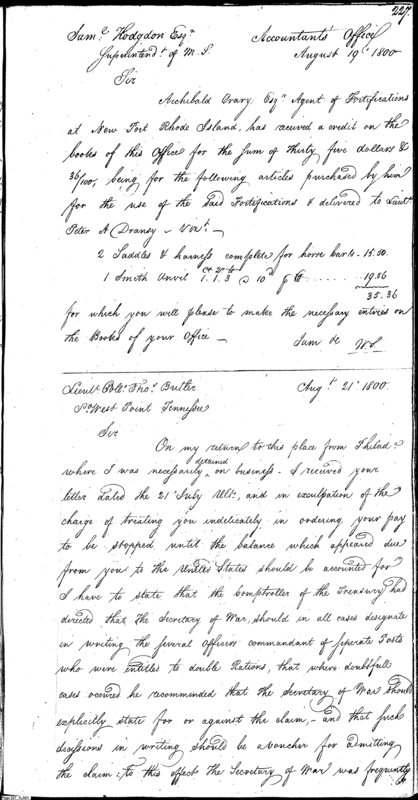 227
Saml Hodgdon Esqr Accountants Office
Superintendt of M. S. August 19th 1800
Sir
Archibald Crary Esqr Agent of Fortifications
at New Port Rhode Island, has received a credit on the
books of this Office for the sum of thirty five dollars &
36/100, being for the following articles purchased by him
for the use of the said Fortifications & delivered to Lieutt
Peter A Dransy — Vizt. —
2 Saddles & harness complete for horse cart — 15.50
1 Smith Anvil 1. 1. 3 @ 10d ⅌ lb ...... 19.86
35.36
for which you will please to make the necessary entries on
the Books of your Office —
I am &c W. S.
Lieutt Colo. Thos. Butler Augt 21st 1800
So West Point Tennessee
Sir
On my return to this place from Philada
where I was necessarily detained on business. I received your
letter dated the 21st July Ulto, and in exculpation of the
charge of treating you indelicately in ordering your pay
to be stopped until the balance which appeared due
from you to the United States should be accounted for
I have to state that the Comptroller of the Treasury had
directed that the Secretary of War, should in all cases designate
in writing the several Officers commandant of seperate Posts
who were entitled to double Rations, that where doubtfull
cases occured he recommended that the Secretary of War should
explicitly state for or against the claim, — and that such
decissions in writing should be a voucher for admitting
the claim: to this effect the Secretary of War was frequently